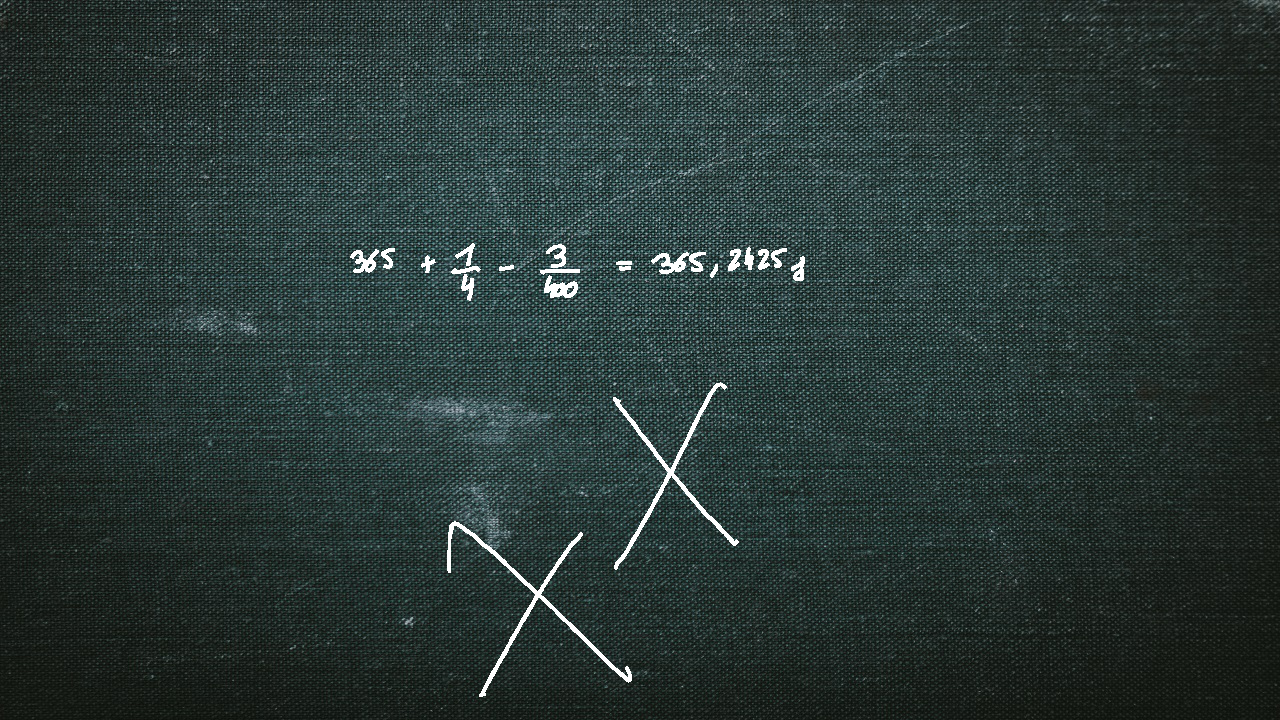 365 + 1/4 - 3/400 = 365,2425 j
X
X